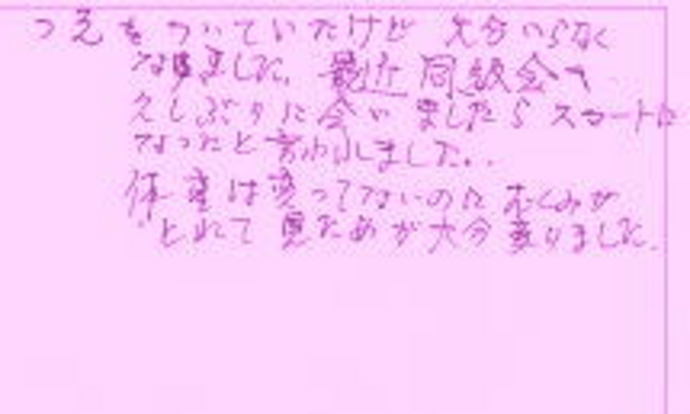 つえをついていたけど 大分いらなく
なりました。最近同級会へ
久しぶりに会いましたらスマートに
なったと言われました..
体重は変ってないのにむくみが
とれて見ためが大分変りました。